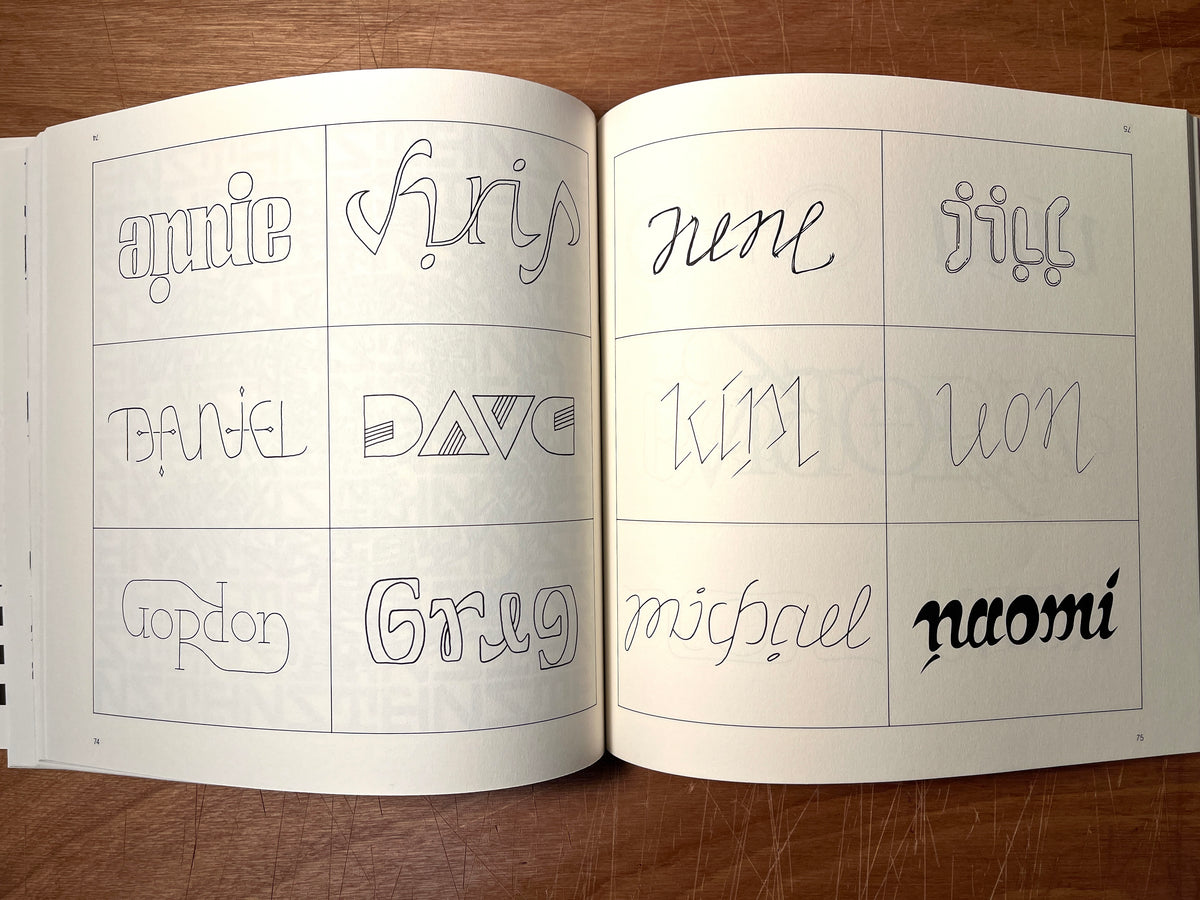 74
annie chris
DANiEL DAVE
GORdon Greg
74
75
irene jill
kim leon
michael naomi
75